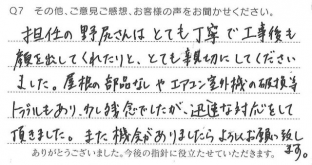 Q7 その他、ご意見ご感想、お客様の声をお聞かせください。
担任の野尻さんはとても丁寧で工事後も
顔を出してくれたりと、とても親切にしてください
ました。屋根の部品なしやエアコン室外機の破損等
トラブルもあり、少し残念でしたが、迅速な対応をして
頂きました。また機会がありましたらよろしくお願い致し
ます。
ありがとうございました。今後の指針に役立たせていただきます。